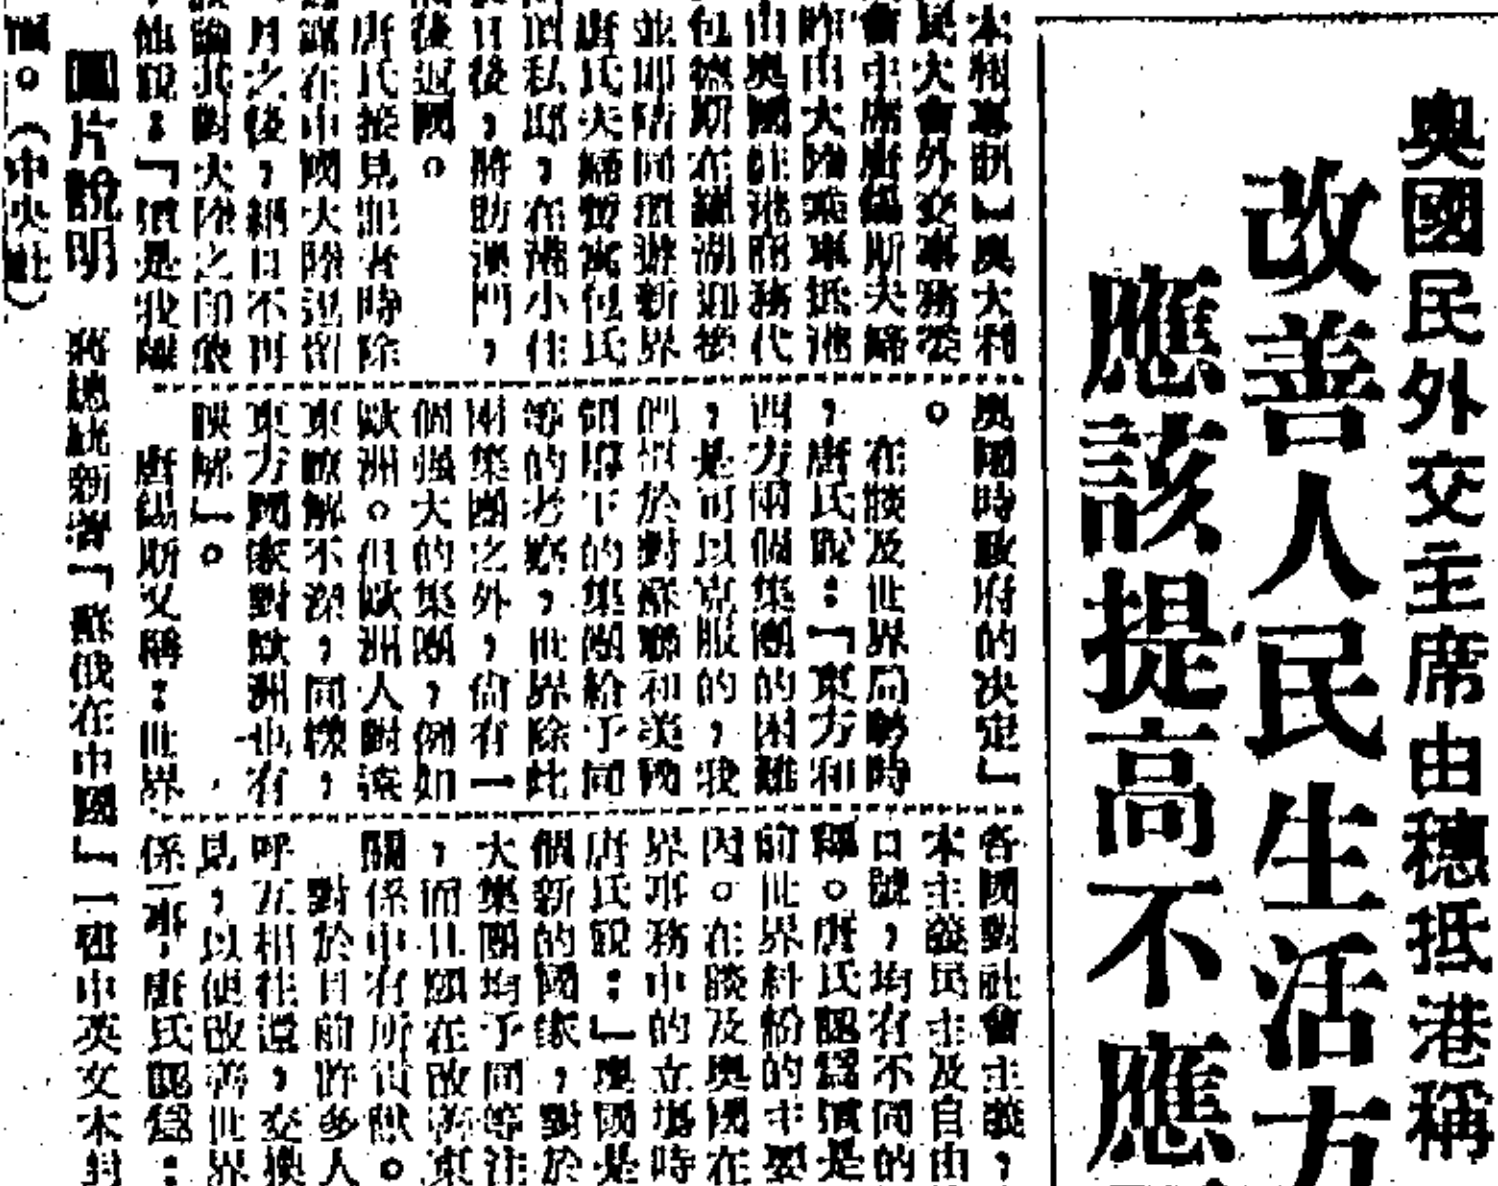 奧國民外交主席由穗抵港稱
改善人民生活方
應該提高不應
本報專訊】奧大利
民大會外交事務委
會主席唐錫斯夫婦
昨由大陸乘車抵港
由奧國駐港商務代
包德斯在羅湖迎接
並即陪同遊新界
唐氏夫婦暫寓包氏
私邸,在港小住
日後,將訪澳門,
後返國。
唐氏接見記者時除
在中國大陸逗留
月之後,絕口不再
論其對大陸之印象
他說:「這是我離
奧國時政府的決定」
。
在談及世界局勢時
,唐氏說:「東方和
西方兩個集團的困難
,是可以克服的,我
們對於對蘇聯和美國
領導下的集團給予同
等的考察,世界除此
兩集團之外,尚有一
個强大的集團,例如
歐洲。但歐洲人對遠
東瞭解不深,同樣,
東方國家對歐洲也有
誤解」。
唐錫斯又稱:世界
各國對社會主義,
本主義民主及自由
口號,均有不同的
釋。唐氏認爲這是
前世界糾紛的主要
因。在談及奧國在
界事務中的立場時
唐氏說:「奧國是
個新的國家,對於
大集團均予同等注
,而且願在改善東
關係中有所貢獻。
對於目前許多人
呼互相往還,交換
見,以便改善世界
係一事,唐氏認爲:
圖片說明 蔣總統新著「蘇俄在中國」一書中英文本封
。(中央社)